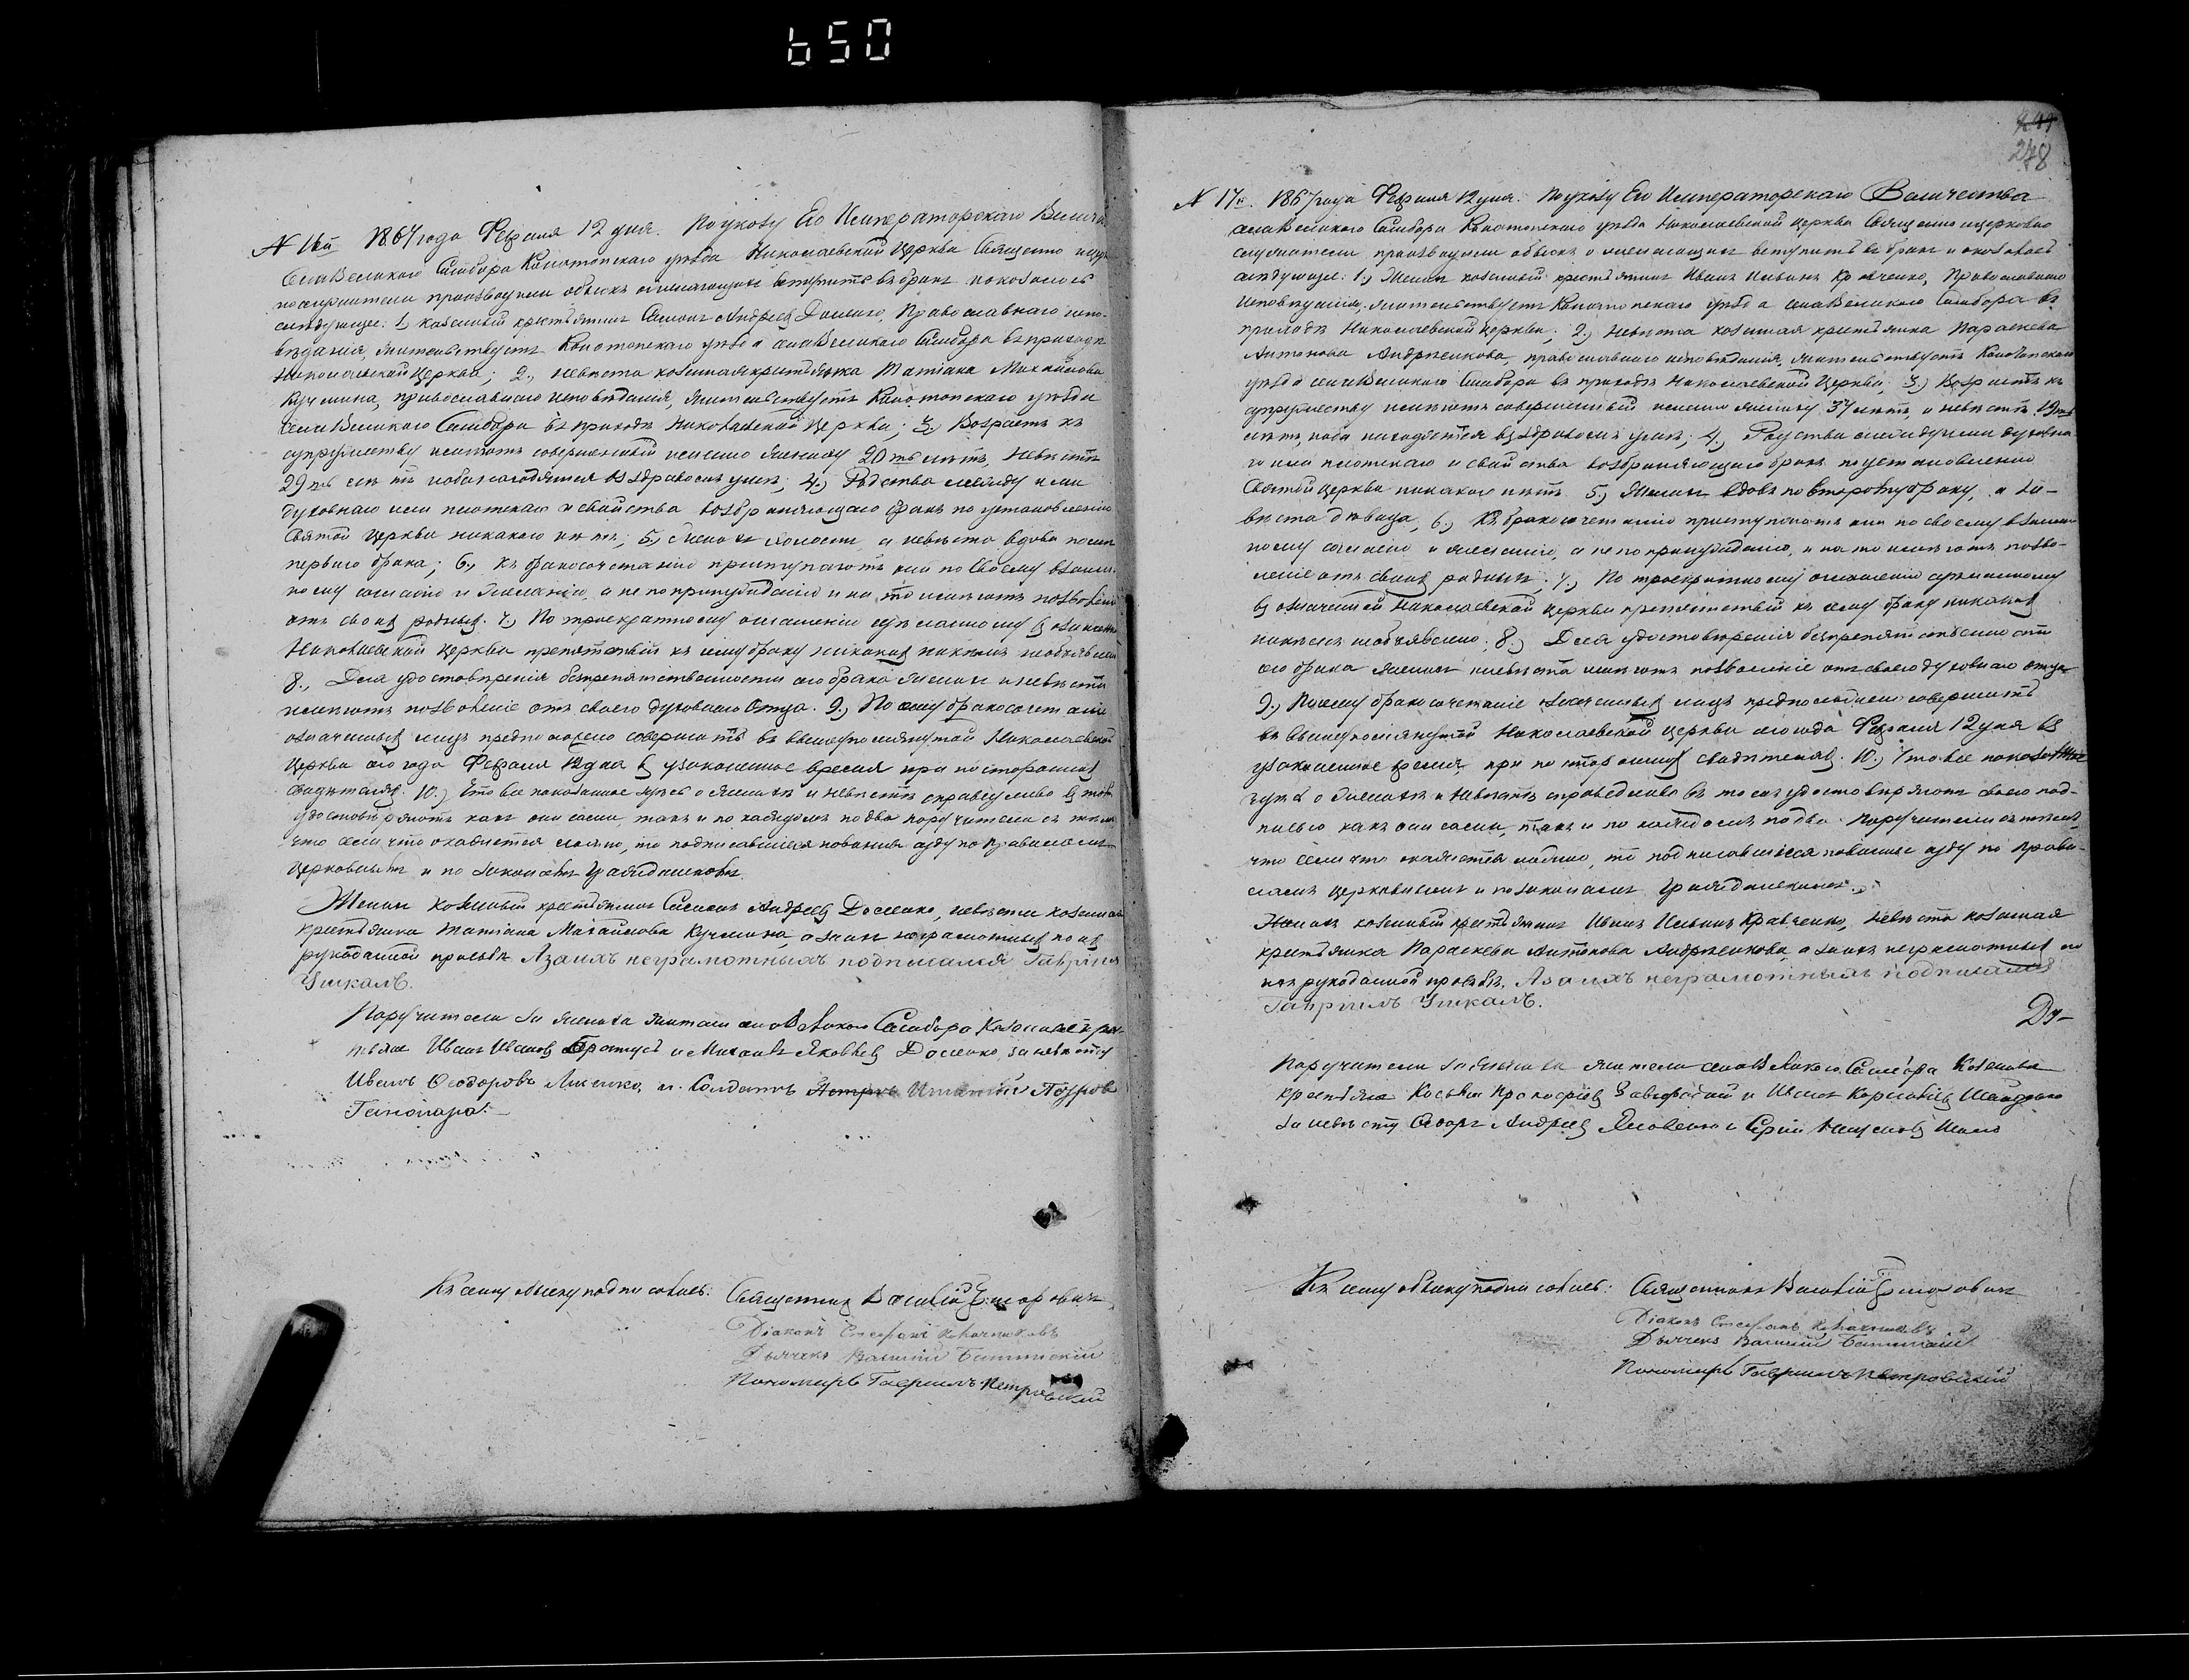 650
N 16й 1867 года Февраля 12 дня. По указу Его Императорскаго Велич
Села Великаго Самбора Конотопскаго уѣзда Николаевской Церкви Священно и цер
послужители производили обыскъ о желающихъ вступить въ бракъ и оказалось
слѣдующее: 1, казенный крестьянинъ Андреевъ Доменко, Православнаго испо-
вѣданія, жительствуетъ Конотопскаго уѣзда села Великаго Самбора въ приходѣ
Николаевской Церкви; 2., невѣста казенная крестьянка Татіана Михайлова
Кучмина, православнаго исповѣданія, жительствуетъ Конотопскаго уѣзда
села Великаго Самбора въ приходѣ Николаевской Церкви; 3., Возрастъ къ
супружеству имѣютъ совершенный именно женихъ 20ть лѣтъ, невѣста
29ть лѣтъ и оба находятся въ здравомъ умѣ; 4., Родства между ими
духовнаго или плотскаго и свойства возбраняющаго бракъ по установленію
Святой Церкви никакого нѣтъ; 5., Женихъ холостъ, а невѣста вдова послѣ
перваго брака; 6., Къ бракосочетанію приступаютъ они по своему взаим-
ному согласію и желанію, а не по принужденію и на то имѣютъ позволеніе
отъ своихъ родныхъ. 7., По троекратному оглашенію сдѣланному въ означенной
Николаевской Церкви препятствій къ сему браку никакихъ никѣмъ необъявлено
8., Для удостовѣренія безпрепятственности сего брака женихъ и невѣста
имѣютъ позволеніе отъ своего духовнаго Отца. 9., По сему бракосочетаніе
означенныхъ лицъ предположено совершить въ вышеупомянутой Николаевской
Церкви сего года Февраля 12 дня въ узаконенное время при постороннихъ
свидѣтеляхъ. 10., Что все показанное здѣсь о женихѣ и невѣстѣ справедливо въ томъ
удостовѣряютъ какъ они сами, такъ и по каждомъ по два поручителя съ тѣмъ
что если что окажется ложно, то подписавшіеся повинны суду по правиламъ
Церковнымъ и по законамъ Гражданскимъ.
Женихъ казенный крестьянинъ Андреевъ Доменко, невѣста казенная
крестьянка Татіана Михайлова Кучмина, а за ихъ неграмотныхъ по ихъ
рукоданной прозьбѣ Азаихъ неграмотныхъ подписался Гавріилъ
Ушкалъ.
Поручители по женихѣ жители села Великаго Самбора Казенные крес-
тьяне Иванъ Ивановъ и Михаилъ Яковлевъ Доменко, за невѣсту
Иванъ Феодоровъ и Солдатъ
Къ сему обыску подписались: Священникъ Василій
Діаконъ Стефанъ
Дьячекъ Василій
Пономарь Гавріилъ Петровскій
278
N 17й. 1867 года Февраля 12 дня. По указу Его Императорскаго Величества
села Великаго Самбора Конотопскаго уѣзда Николаевской Церкви Священно и церковно
служители производили обыскъ о желающихъ вступить въ бракъ и оказалось
слѣдующее: 1., Женихъ казенный крестьянинъ Иванъ Ильинъ Кравченко, Православнаго
исповѣданія, жительствуетъ Конотопскаго уѣзда села Великаго Самбора въ
приходѣ Николаевской Церкви; 2., Невѣста казенная крестьянка Параскева
Антонова Андрѣенкова, православнаго исповѣданія, жительствуетъ Конотопскаго
уѣзда села Великаго Самбора въ приходѣ Николаевской Церкви; 3., Возрастъ къ
супружеству имѣютъ совершенный именно женихъ 37 лѣтъ, а невѣста 19ть
лѣтъ, и оба находятся въ здравомъ умѣ; 4., Родства между ими духовна-
го или плотскаго и свойства возбраняющаго бракъ по установленію
Святой Церкви никакого нѣтъ. 5., Женихъ вдовъ по второму браку, а не-
вѣста дѣвица, 6., Къ бракосочетанію приступаютъ они по своему взаим-
ному согласію и желанію, а не по принужденію, и на то имѣютъ позво-
леніе отъ своихъ родныхъ. 7., По троекратному оглашенію сдѣланному
въ означенной Николаевской Церкви препятствій къ сему браку никакихъ
никѣмъ необъявлено. 8., Для удостовѣренія безпрепятственности
сего брака женихъ и невѣста имѣютъ позволеніе отъ своего духовнаго отца
9., По сему бракосочетаніе означенныхъ лицъ предположено совершить
въ вышеупомянутой Николаевской Церкви сего года Февраля 12 дня въ
узаконенное время, при постороннихъ свидѣтеляхъ. 10., Что все показанное
здѣсь о женихѣ и невѣстѣ справедливо въ томъ удостовѣряютъ своею под-
писью какъ они сами, такъ и по каждомъ по два поручителя съ тѣмъ,
что если что окажется ложно, то подписавшіеся повинны суду по прави-
ламъ Церковнымъ и по законамъ Гражданскимъ.
Женихъ казенный крестьянинъ Иванъ Ильинъ Кравченко, невѣста казенная
крестьянка Параскева Антонова Андрѣенкова, а за ихъ неграмотныхъ по
ихъ рукоданной прозьбѣ, Азаихъ неграмотныхъ подписался
Гавріилъ Ушкалъ.
Поручители по женихѣ жители села Великаго Самбора Казенные
крестьяне Косьма Прокофіевъ и Иванъ
за невѣсту Андреевъ Яковенко и
Къ сему обыску подписались: Священникъ Василій
Діаконъ Стефанъ
Дьячекъ Василій
Пономарь Гавріилъ Петровскій